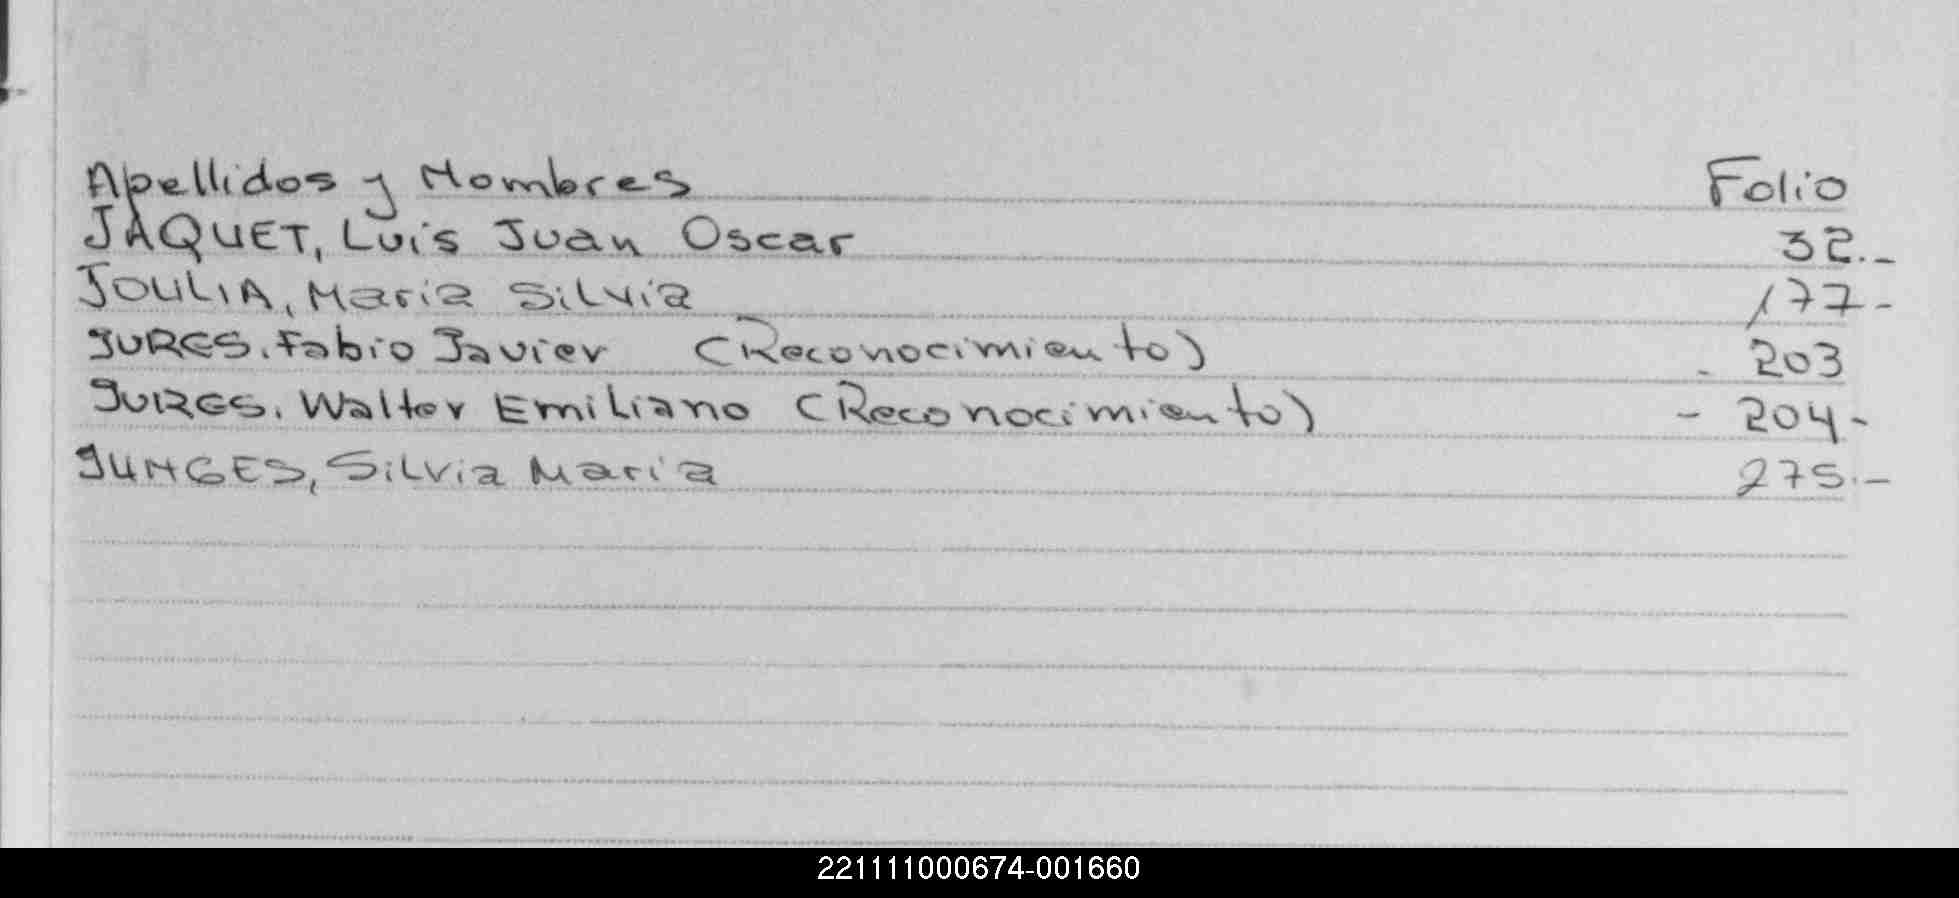 Apellidos y Nombres Folio
JAQUET, Luis Juan Oscar 32.-
JOULIA, Maria Silvia 177-
JURGS. Fabio Javier (Reconocimiento) - 203
JURGS. Walter Emiliano (Reconocimiento) - 204-
JUNGES, Silvia Maria 275.-
221111000674-001660